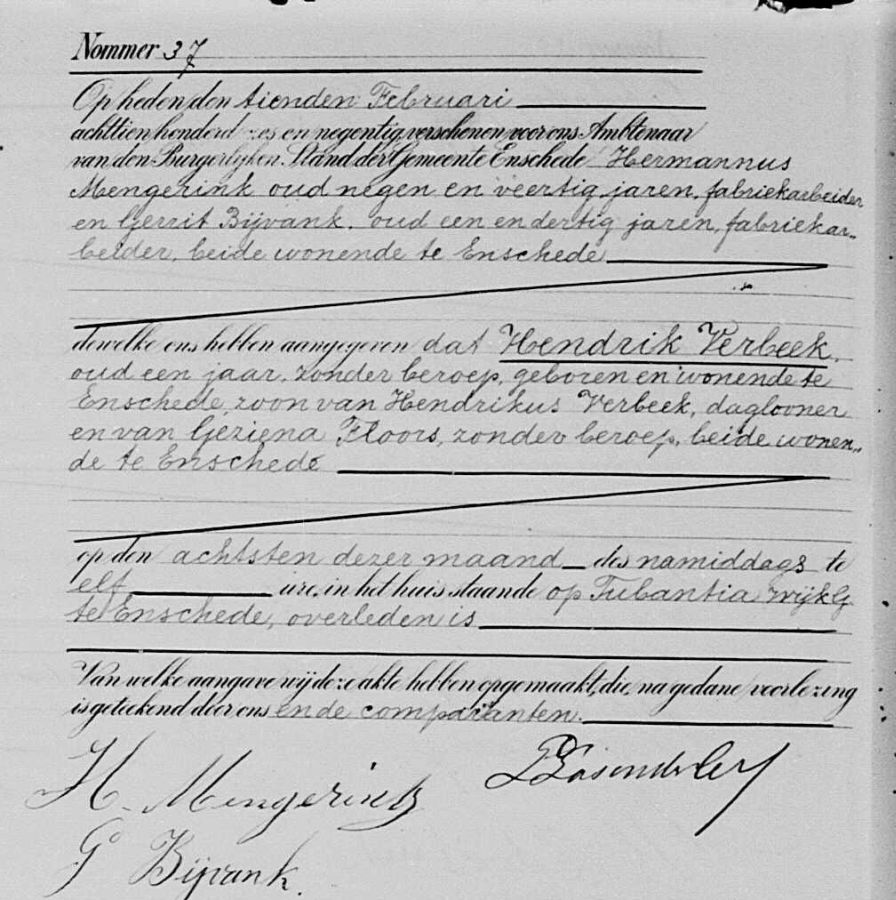 Nommer 37
Op heden den tienden Februari
achttien honderd zes en negentig, verschenen voor ons Ambtenaar
van den Burgerlijken Stand der Gemeente Enschede Hermannus
Mengerink oud negen en veertig jaren, fabriekarbeider
en Gerrit Bijvank, oud een en dertig jaren, fabriekar„
beider, beide wonende te Enschede
dewelke ons hebben aangegeven dat Hendrik Verbeek,
oud een jaar, zonder beroep, geboren en wonende te
Enschede, zoon van Hendrikus Verbeek, daglooner
en van Geziena Floors, zonder beroep, beide wonen„
de te Enschede
op den achtsten dezer maand des namiddags te
elf ure, in het huis staande op Tubantia wijk G
te Enschede, overleden is
Van welke aangave wij deze akte hebben opgemaakt, die, na gedane voorlezing
is geteekend door ons en de comparanten.
H. Mengerink
G Bijvank.